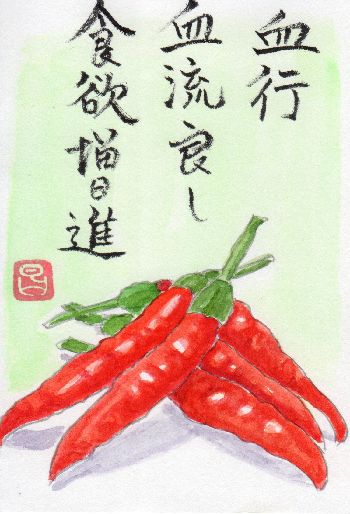 血行
血流良し
食欲増進